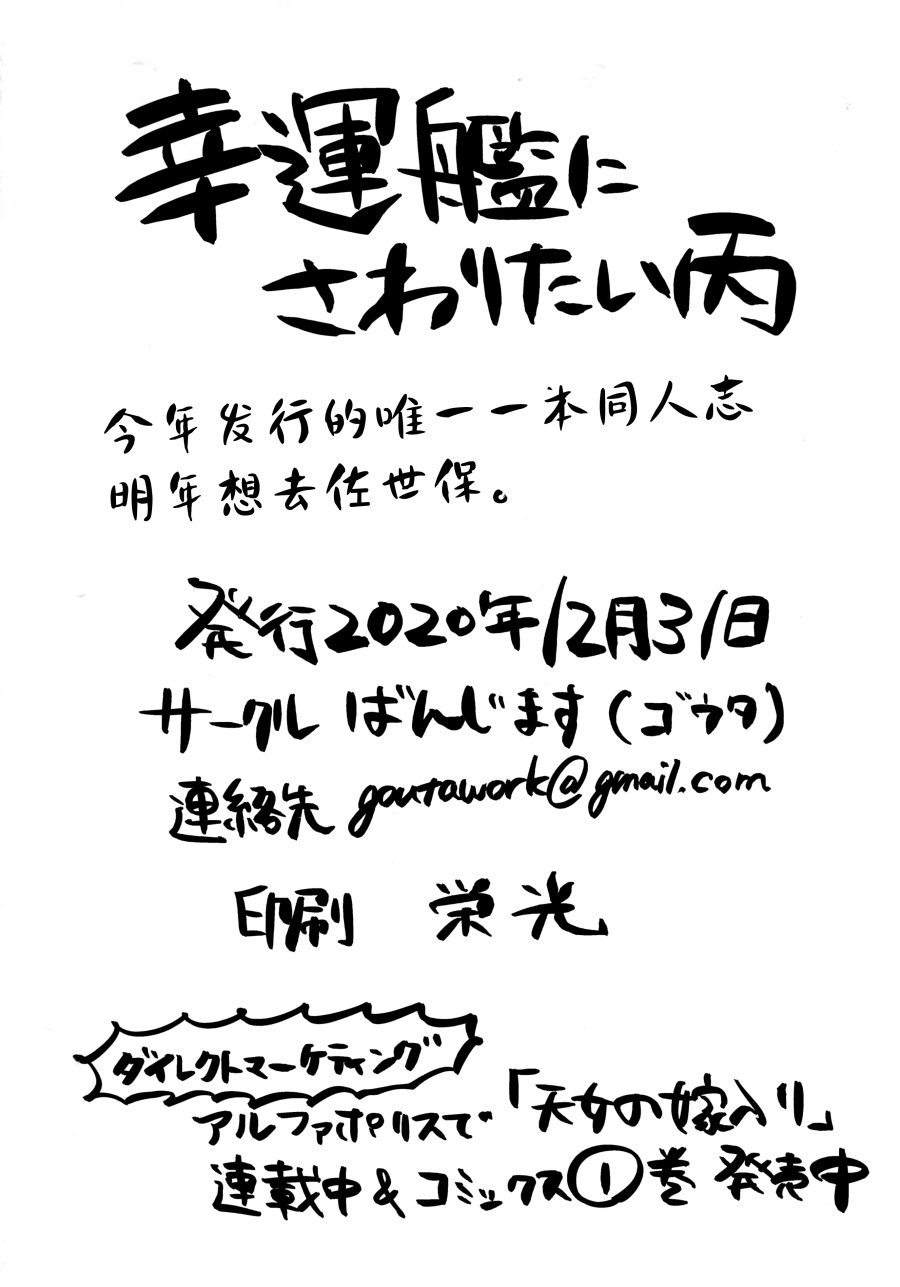 幸運艦に
さわりたい丙
今年发行的唯一一本同人志
明年想去佐世保。
発行2020年12月31日
サークル ばんじます(ゴウタ)
連絡先 goutawork@gmail.com
印刷 栄光
ダイレクトマーケティング
アルファポリスで「天女の嫁入り」
連載中&コミックス①巻 発売中